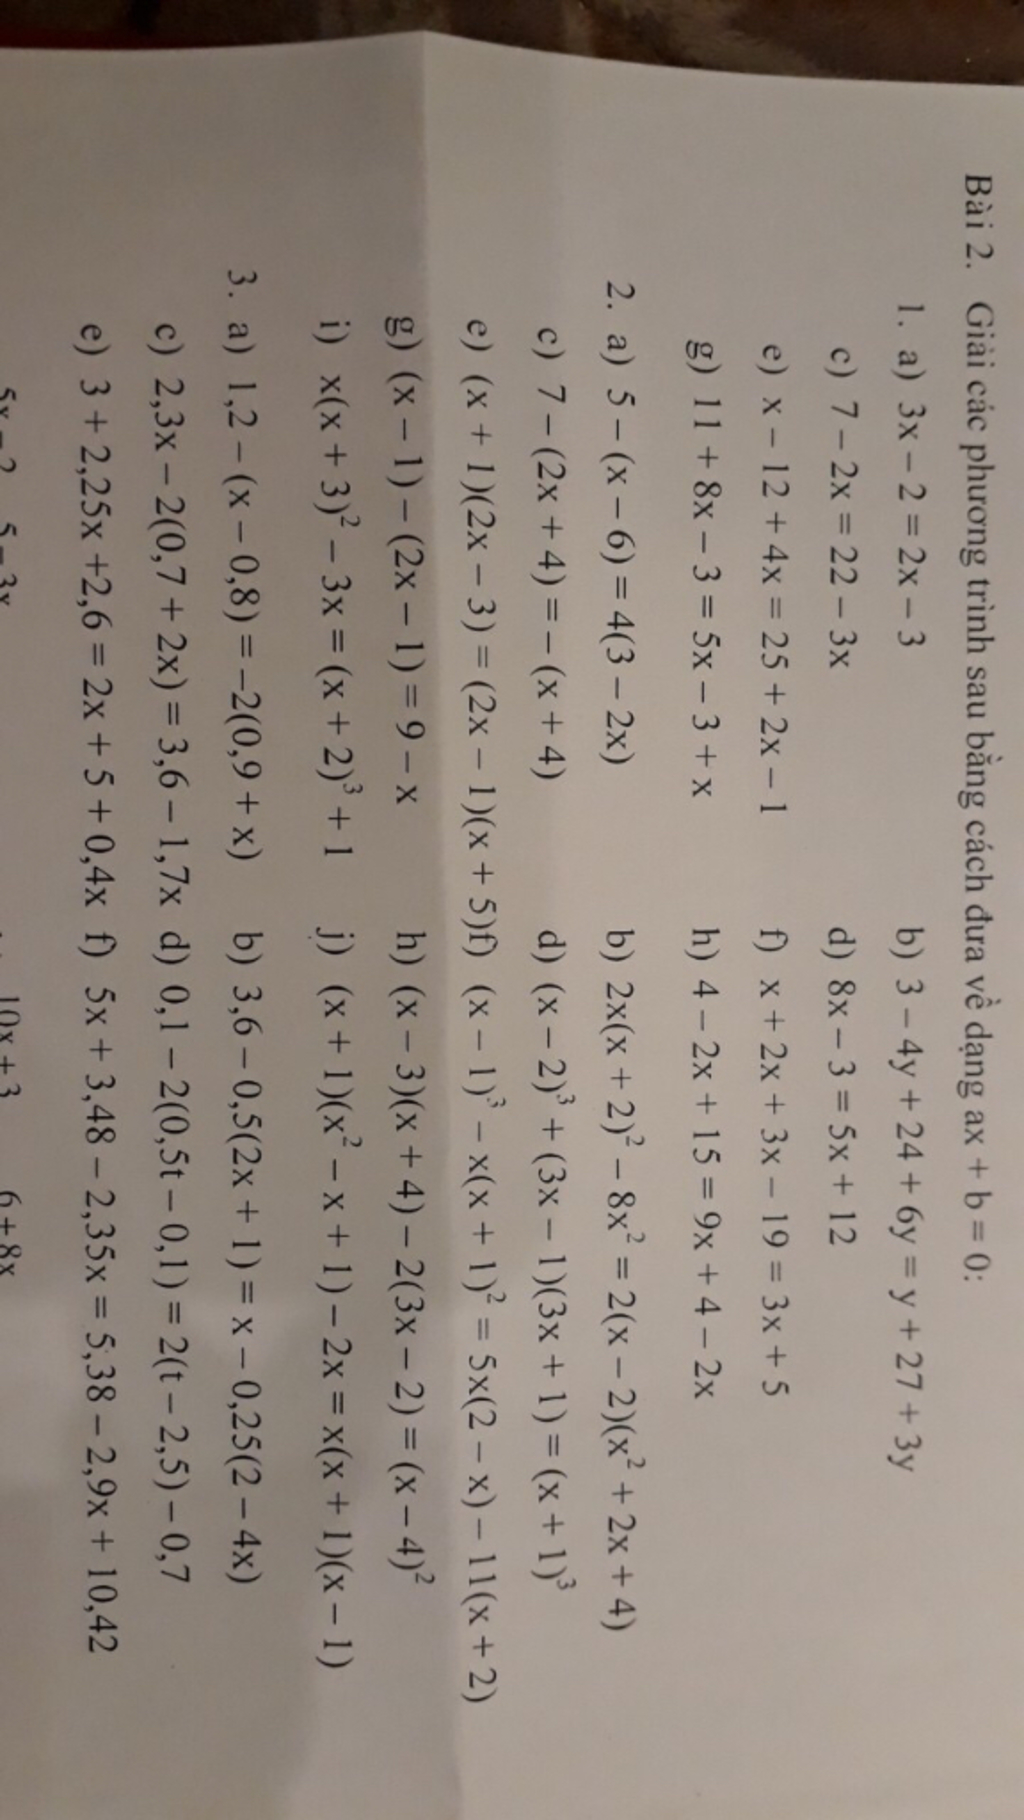 Bài 2. Giải các phương trình sau bằng cách đưa về dạng ax + b = 0:
1. a) 3x – 2 = 2x – 3 b) 3 – 4y + 24 + 6y = y + 27 + 3y
c) 7 – 2x = 22 – 3x d) 8x – 3 = 5x + 12
e) x – 12 + 4x = 25 + 2x – 1 f) x + 2x + 3x – 19 = 3x + 5
g) 11 + 8x – 3 = 5x – 3 + x h) 4 – 2x + 15 = 9x + 4 – 2x
2. a) 5 – (x – 6) = 4(3 – 2x) b) 2x(x + 2)² – 8x² = 2(x – 2)(x² + 2x + 4)
c) 7 – (2x + 4) = – (x + 4) d) (x – 2)³ + (3x – 1)(3x + 1) = (x + 1)³
e) (x + 1)(2x – 3) = (2x – 1)(x + 5) f) (x – 1)³ – x(x + 1)² = 5x(2 – x) – 11(x + 2)
g) (x – 1) – (2x – 1) = 9 – x h) (x – 3)(x + 4) – 2(3x – 2) = (x – 4)²
i) x(x + 3)² – 3x = (x + 2)³ + 1 j) (x + 1)(x² – x + 1) – 2x = x(x + 1)(x – 1)
3. a) 1,2 – (x – 0,8) = –2(0,9 + x) b) 3,6 – 0,5(2x + 1) = x – 0,25(2 – 4x)
c) 2,3x – 2(0,7 + 2x) = 3,6 – 1,7x d) 0,1 – 2(0,5t – 0,1) = 2(t – 2,5) – 0,7
e) 3 + 2,25x +2,6 = 2x + 5 + 0,4x f) 5x + 3,48 – 2,35x = 5,38 – 2,9x + 10,42
5x – 2 5 – 3x 10x + 3 6 + 8x